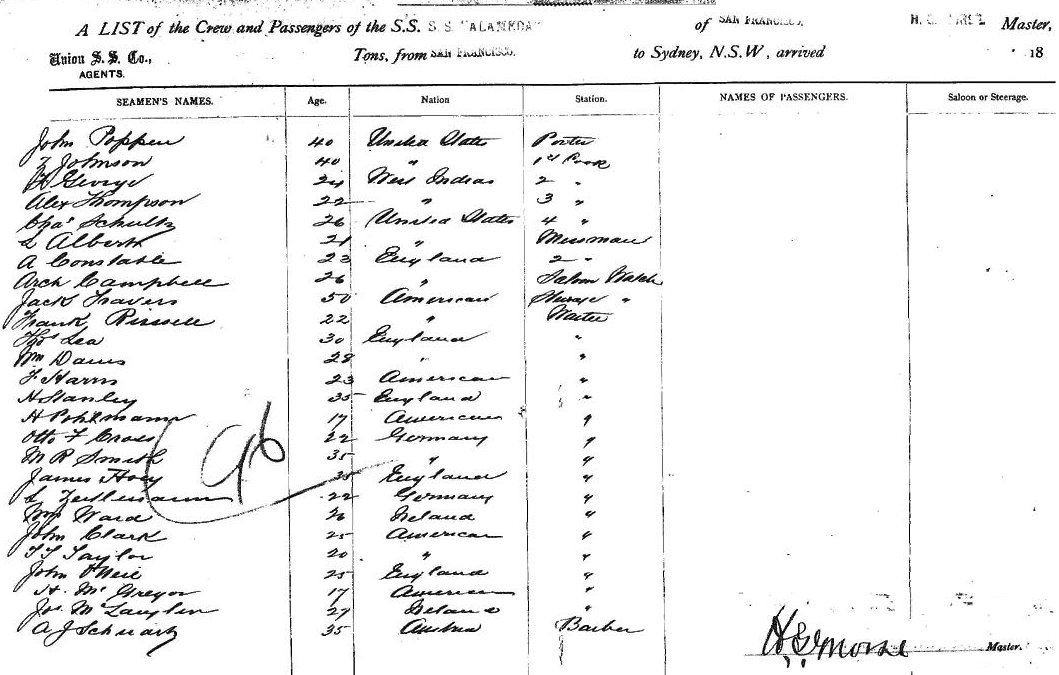 A LIST of the Crew and Passengers of the S.S. S.S. "ALAMEDA" of SAN FRANCISCO, Master,
Union S. S. Co., Tons, from SAN FRANCISCO. to Sydney, N.S.W, arrived 18
AGENTS.
SEAMEN'S NAMES. Age. Nation Station. NAMES OF PASSENGERS. Saloon or Steerage.
John Poppen 40 United States Porter
Z Johnson 40 " 1st Cook
H George 24 West Indias 2 "
Alex Thompson 22 " 3 "
Chas Schultz 26 United States 4 "
L Albert 21 " Messman
A Constable 23 England 2 "
Arch Campbell 26 " Saloon Watch
Jack Travers 50 American Steerage "
Frank Russell 22 " Waiter
Thos Lea 30 England "
Wm Davis 28 " "
F Harris 23 American "
H Stanley 35 England "
H Pohlmann 17 American "
Otto F Cross 22 Germany "
M R Smith 35 " "
James Hoey 35 England "
L Zeitlemann 22 Germany "
Wm Ward 26 Ireland "
John Clark 25 American "
T F Taylor 20 " "
John O'Neil 25 England "
H. McGregor 17 American "
Jos. McLauglin 27 Ireland "
A J Schwartz 35 Austria Barber
96
H G Morse Master.